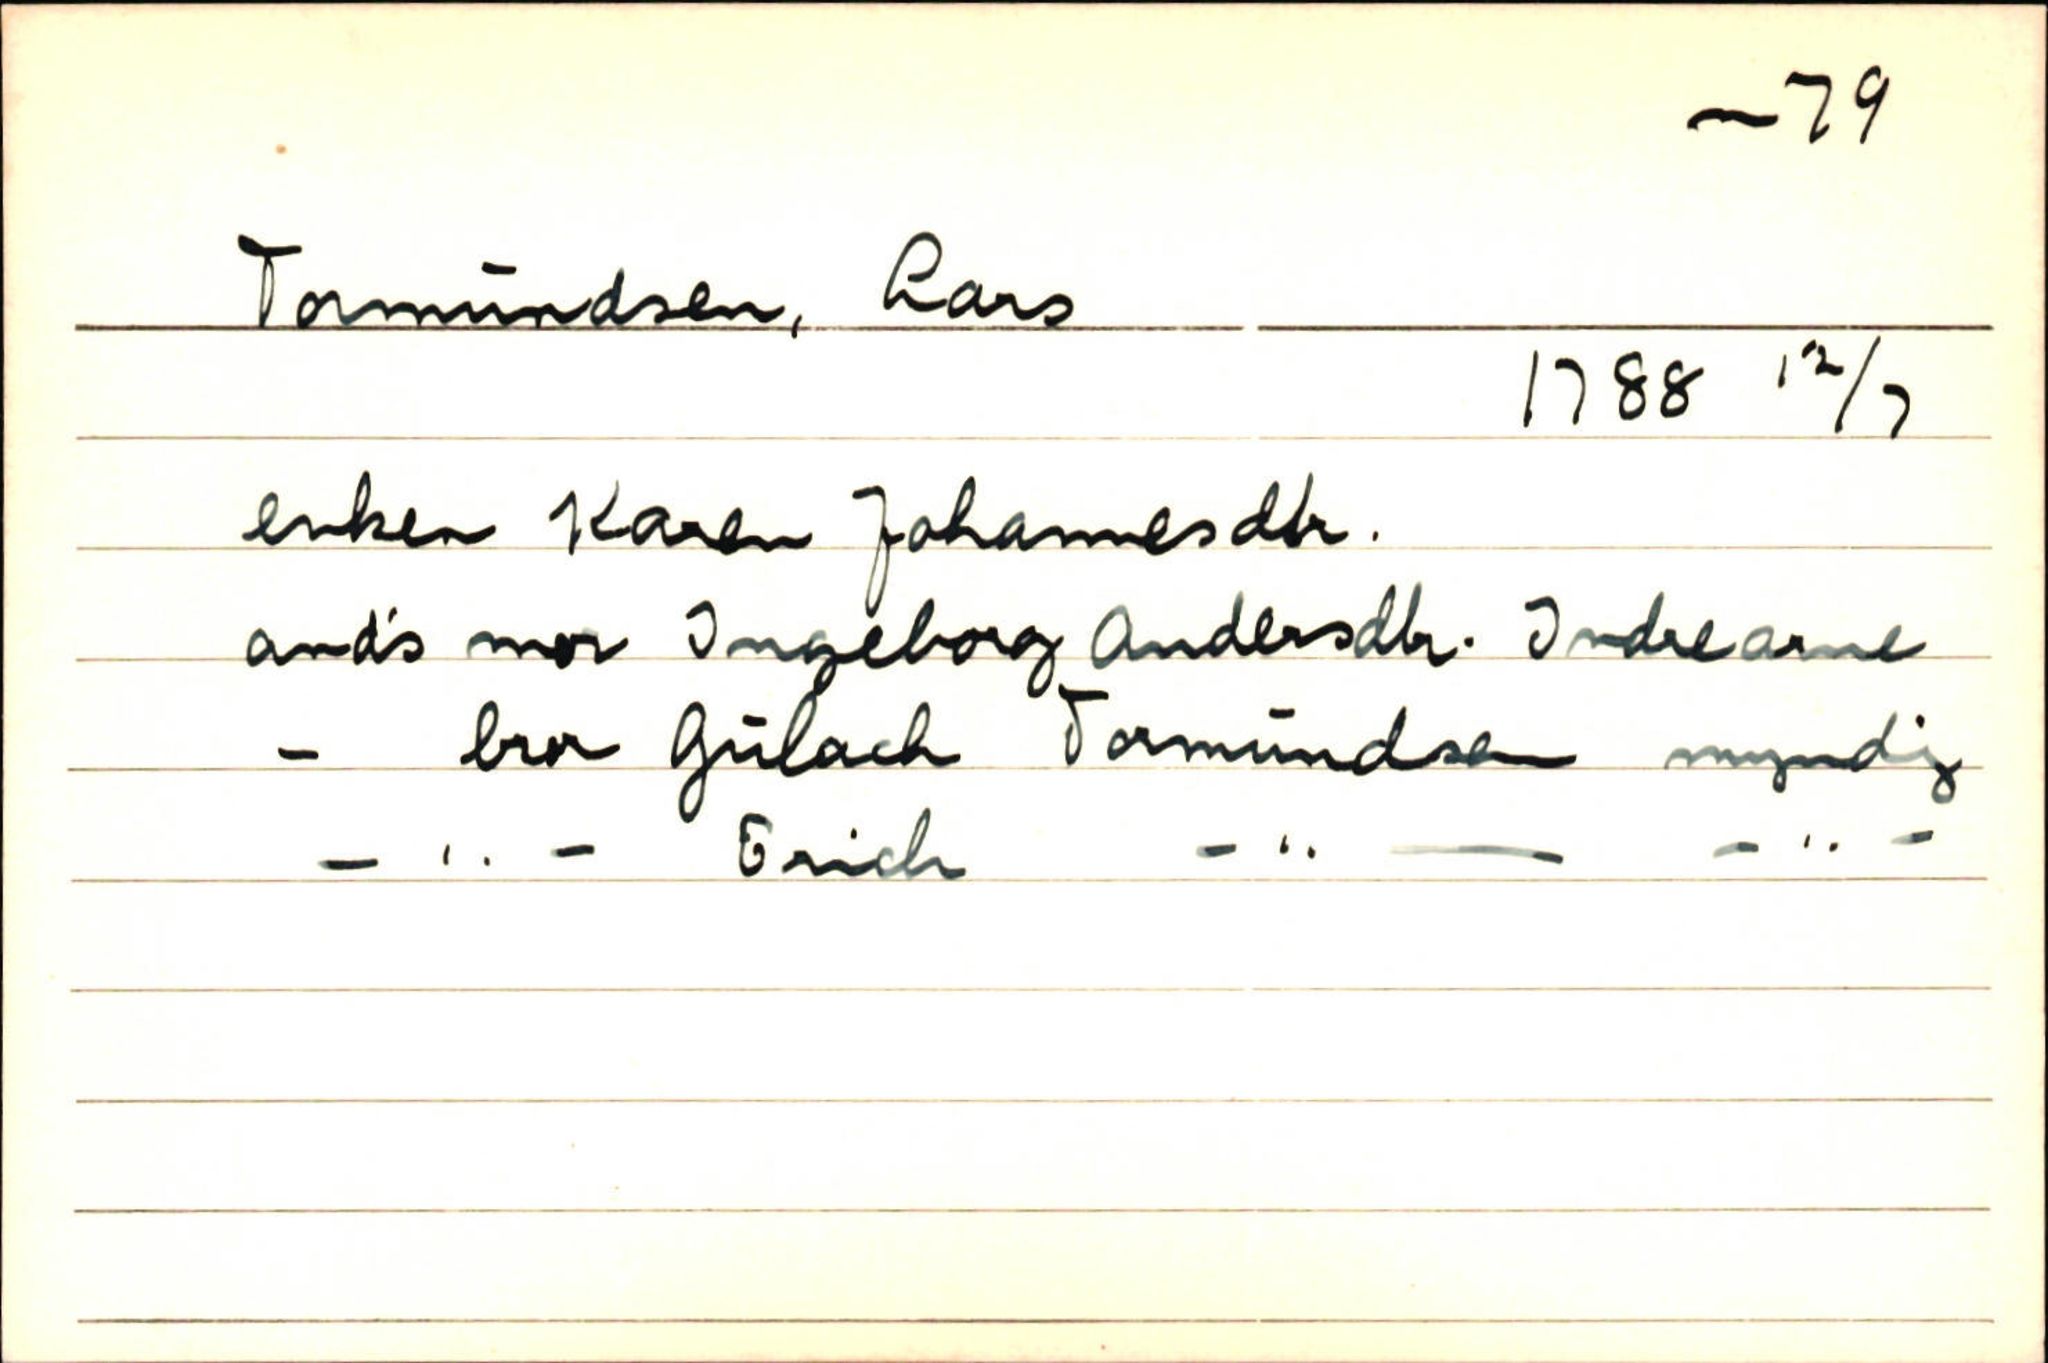 ~79
Tormundsen, Lars
1788 12/7
enken Karen Johannesdtr.
avd's mor Ingeborg Andersdtr. Indrearne
- bror Gulach Tormundsen myndig
- " - Erich - " - - " -